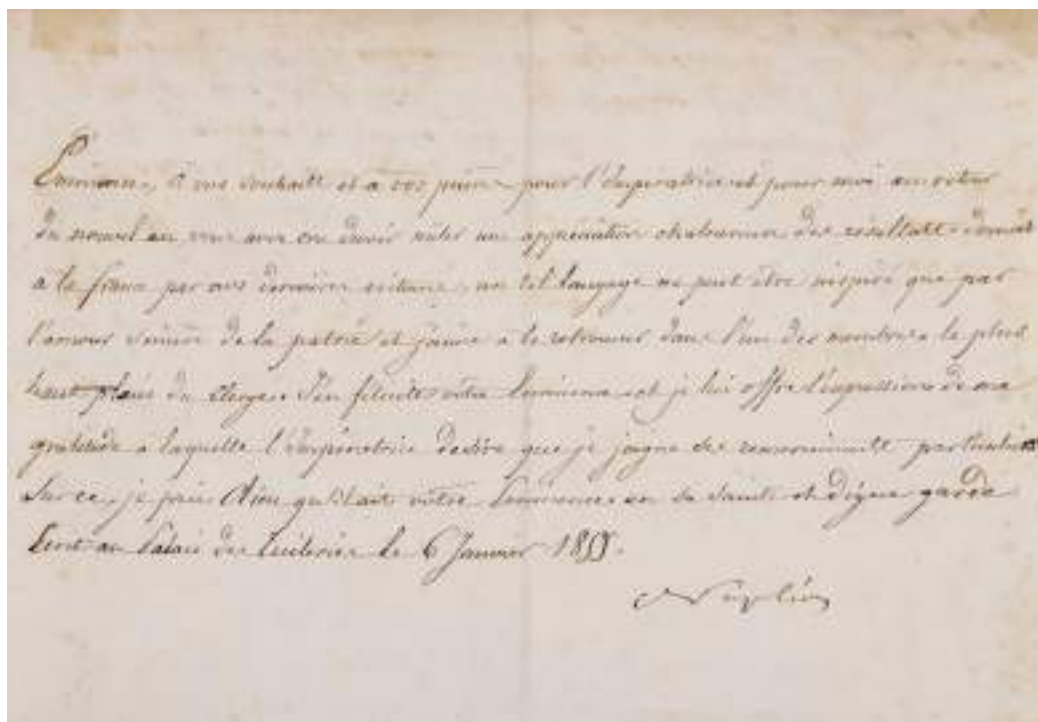 Eminence, à vos souhaits et à vos prières pour l'Impératrice et pour moi au retour
du nouvel an, vous avez cru devoir mêler une appréciation chaleureuse des résultats donnés
à la france par nos dernières victoires, un tel langage ne peut être inspiré que par
l'amour sincère de la patrie et j'aime à le retrouver dans l'un des membres le plus
haut placés du Clergé. J'en félicite votre Eminence et je lui offre l'expression de ma
gratitude à laquelle l'impératrice desire que je joigne ses remerciments particuliers
Sur ce, je prie Dieu qu'il ait votre Eminence en sa Sainte et digne garde
Ecrit au Palais des Tuileries le 6 Janvier
Napoléon